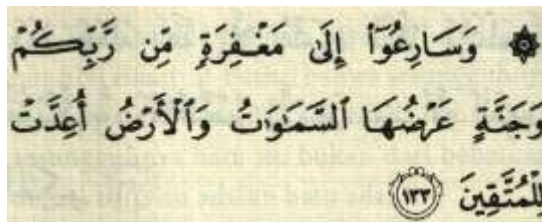 ۞ وَسَارِعُوٓا۟ إِلَىٰ مَغْفِرَةٍۢ مِّن رَّبِّكُمْ
وَجَنَّةٍ عَرْضُهَا ٱلسَّمَـٰوَٰتُ وَٱلْأَرْضُ أُعِدَّتْ
لِلْمُتَّقِينَ ﴿١٣٣﴾